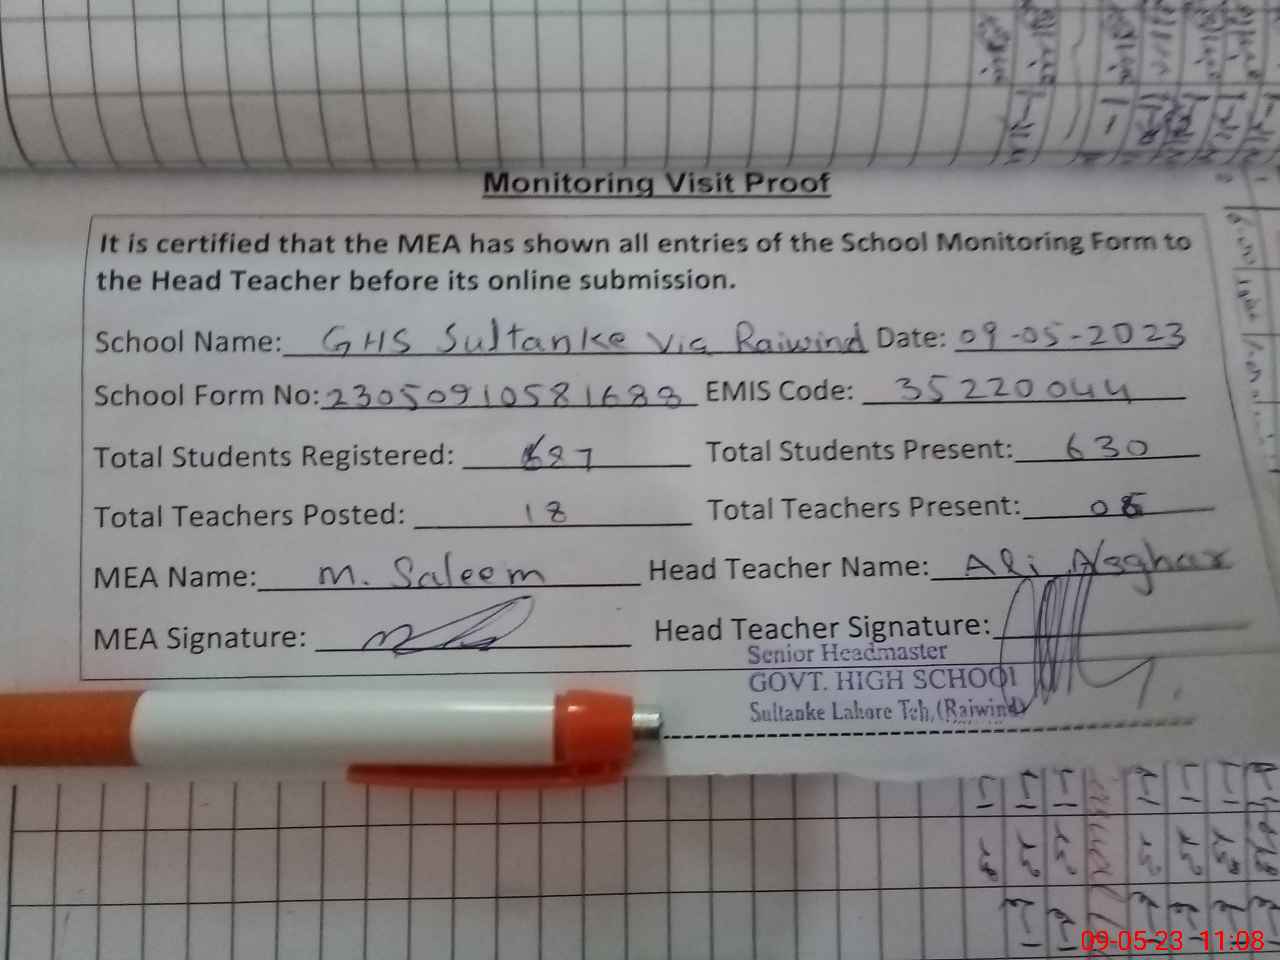 Monitoring Visit Proof
It is certified that the MEA has shown all entries of the School Monitoring Form to
the Head Teacher before its online submission.
School Name: GHS Sultanke Via Raiwind Date: 09-05-2023
School Form No: 23050910581688 EMIS Code: 35220044
Total Students Registered: 687 Total Students Present: 630
Total Teachers Posted: 18 Total Teachers Present:
MEA Name: M. Saleem Head Teacher Name: Ali Asghar
MEA Signature: Head Teacher Signature:
Senior Headmaster
GOVT. HIGH SCHOOL
Sultanke Lahore Teh, (Raiwind)
09-05-23 11:08